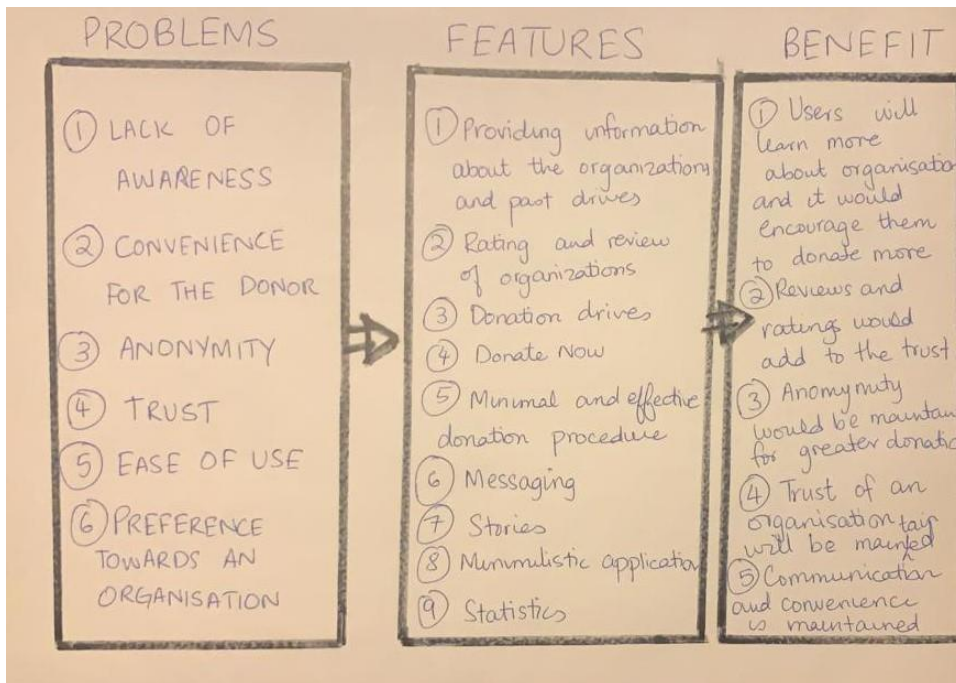 PROBLEMS
① LACK OF
AWARENESS
② CONVENIENCE
FOR THE DONOR
③ ANONYMITY
④ TRUST
⑤ EASE OF USE
⑥ PREFERENCE
TOWARDS AN
ORGANISATION
FEATURES
① Providing information
about the organizations
and past drives
② Rating and review
of organizations
③ Donation drives
④ Donate Now
⑤ Minimal and effective
donation procedure
⑥ Messaging
⑦ Stories
⑧ Minimulistic application
⑨ Statistics
BENEFIT
① Users will
learn more
about organisatio
and it would
encourage them
to donate more
② Reviews and
ratings would
add to the trust
③ Anomymity
would be maintain
for greater donatio
④ Trust of an
organisation
will be maintained
⑤ Communication
and convenience
is maintained